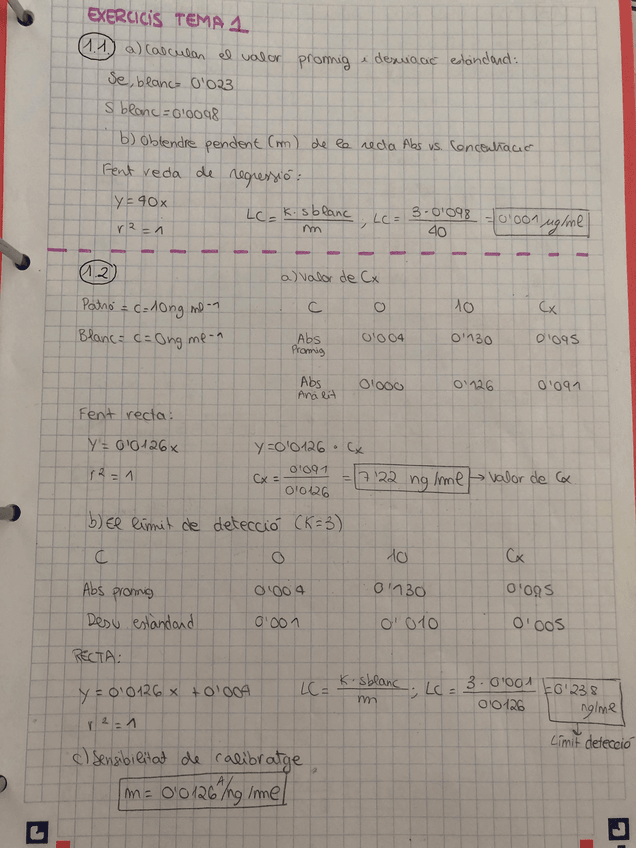 EXERCICIS TEMA 1
1.1. a) Calcular el valor promig i desviació estàndard:
Se, blanc= 0'023
S blanc = 0'0098
b) Obtendre pendent (m) de la recta Abs vs Concentració
Fent recta de regressió:
y = 40x
r² = 1
LC = K · sblanc / m , LC = 3 · 0'098 / 40 = 0'001 μg/ml
1.2
a) Valor de Cx
Patró = C = 10 ng ml⁻¹
C 0 10 Cx
Blanc = C = 0 ng ml⁻¹
Abs Promig 0'004 0'130 0'095
Abs Anàlit 0'000 0'126 0'091
Fent recta:
Y = 0'0126x
r² = 1
Y = 0'0126 · Cx
Cx = 0'091 / 0'0126 = 7'22 ng/ml → Valor de Cx
b) El límit de detecció (K=3)
C 0 10 Cx
Abs promig 0'004 0'130 0'095
Desv estàndard 0'001 0'010 0'005
RECTA:
y = 0'0126 x + 0'004
r² = 1
LC = K · sblanc / m ; LC = 3 · 0'001 / 0'0126 = 0'238 ng/ml
↓
Límit detecció
c) Sensibilitat de calibratge
m = 0'0126 A/ng/ml